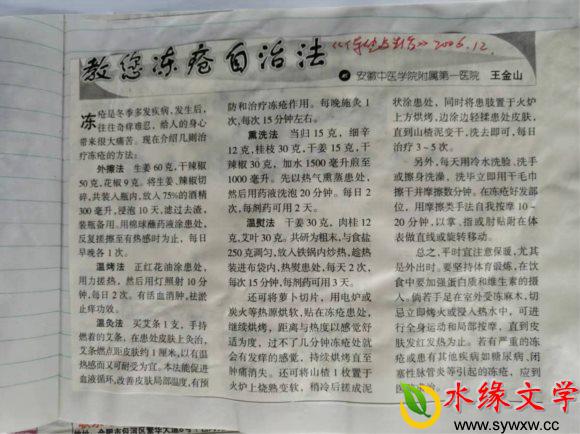 教您冻疮自治法
2006.12.
安徽中医学院附属第一医院 王金山
冻疮是冬季多发疾病,发生后,
往往奇痒难忍,给人的身心
带来很大痛苦。现在介绍几则治
疗冻疮的方法:
外擦法 生姜60克,干辣椒
50克,花椒9克。将生姜、辣椒切
碎,共装入瓶内,放入75%的酒精
300毫升,浸泡10天,滤过去渣,
装瓶备用。用棉球蘸药液涂患处,
反复搓擦至有热感时为止,每日
早晚各1次。
温烤法 正红花油涂患处,
用力搓热,然后用灯照射10分
钟,每日2次。有活血消肿,祛淤
止痒功效。
温灸法 买艾条1支,手持
燃着的艾条,在患处皮肤上灸治,
艾条燃点距皮肤约1厘米,以有温
热感而又可耐受为宜。本法能促进
血液循环,改善皮肤局部温度,有预
防和治疗冻疮作用。每晚施灸1
次,每次15分钟左右。
熏洗法 当归15克,细辛
12克,桂枝30克,干姜15克,干
辣椒30克,加水1500毫升煎至
1000毫升。先以热气熏蒸患处,
然后用药液洗泡20分钟。每日2
次,每剂药可用2天。
温熨法 干姜30克,肉桂12
克,艾叶30克。共研为粗末,与食盐
250克调匀,放入铁锅内炒热,趁热
装进布袋内,热熨患处,每天2次,
每次15分钟,每剂药可用3天。
还可将萝卜切片,用电炉或
炭火等热源烘软,贴在冻疮患处,
继续烘烤,距离与热度以感觉舒
适为度,过不了几分钟冻疮处就
会有发痒的感觉,持续烘烤直至
肿痛消失。还可将山楂1枚置于
火炉上烧熟变软,稍冷后搓成泥
状涂患处,同时将患肢置于火炉
上方烘烤,边涂边轻揉患处皮肤,
直到山楂泥变干,洗去即可,每日
治疗3~5次。
另外,每天用冷水洗脸、洗手
或擦身洗澡,洗毕立即用干毛巾
擦干并摩擦数分钟。在冻疮好发部
位,用摩擦类手法自我按摩10~
20分钟,以掌、指或肘贴附在体
表做直线或旋转移动。
总之,平时宜注意保暖,尤其
是外出时。要坚持体育锻炼,在饮
食中要加强蛋白质和维生素的摄
入。倘若手足在室外受冻麻木,切
忌立即烤火或浸入热水中,可进
行全身运动和局部按摩,直到皮
肤发红发热为止。若有严重的冻
疮或患有其他疾病如糖尿病、闭
塞性脉管炎等引起的冻疮,应到
水缘文学
www.sywxw.cc